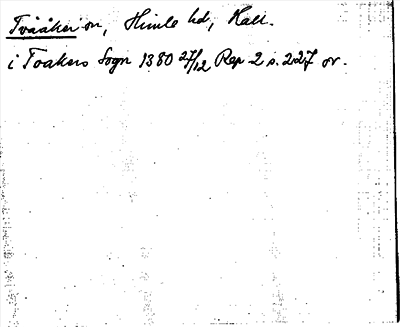 Tvååker sn, Himle hd, Hall.
i Toakers Sogn 1380 27/12 Rep 2 s. 227 or.